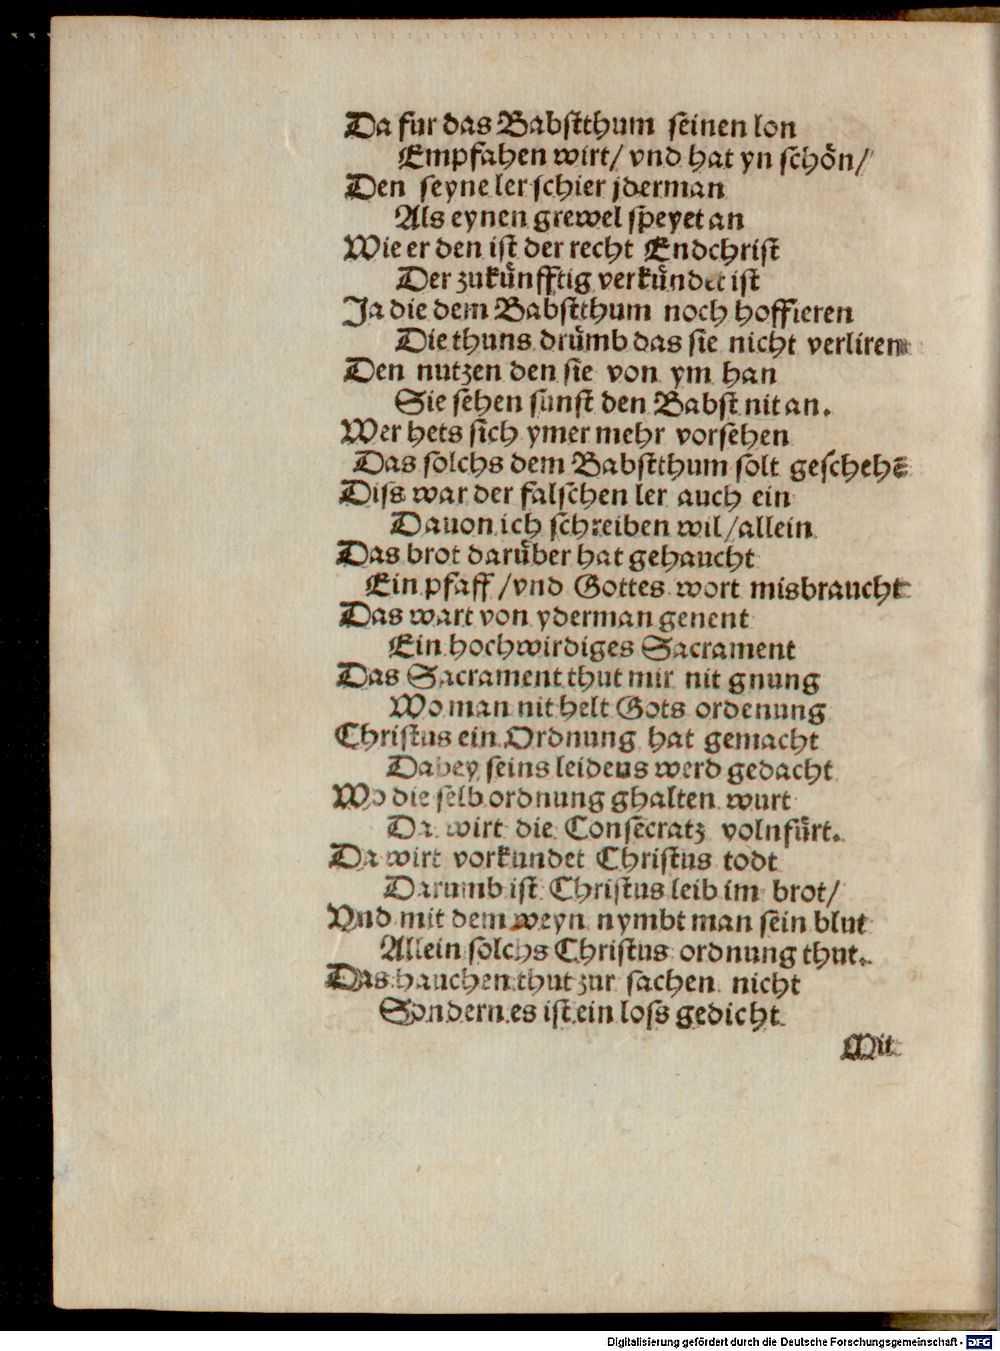 Da fur das Babstthum seinen lon
Empfahen wirt/ vnd hat yn schön/
Den seyne ler schier jderman
Als eynen grewel speyet an
Wie er den ist der recht Endchrist
Der zukuͤnfftig verkuͤndet ist
Ja die dem Babstthum noch hoffieren
Die thuns druͤmb das sie nicht verliren
Den nutzen den sie von ym han
Sie sehen sunst den Babst nit an.
Wer hets sich ymer mehr vorsehen
Das solchs dem Babstthum solt geschehē
Diss war der falschen ler auch ein
Dauon ich schreiben wil/ allein
Das brot daruͤber hat gehaucht
Ein pfaff /vnd Gottes wort misbraucht
Das wart von yderman genent
Ein hochwirdiges Sacrament
Das Sacrament thut mir nit gnung
Wo man nit helt Gots ordenung
Christus ein Ordnung hat gemacht
Dabey seins leidens werd gedacht
Wo die selb ordnung ghalten wurt
Da wirt die Consecratz volnfuͤrt.
Da wirt vorkundet Christus todt
Darumb ist Christus leib im brot/
Vnd mit dem weyn nymbt man sein blut
Allein solchs Christus ordnung thut.
Das hauchen thut zur sachen nicht
Sondern es ist ein loss gedicht
Mit
Digitalisierung gefördert durch die Deutsche Forschungsgemeinschaft - DFG